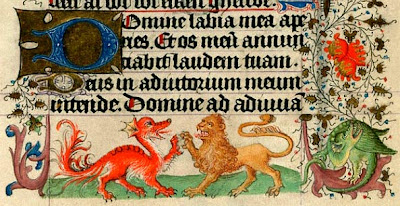 Domine labia mea ape
ries. Et os meū annun
tiabit laudem tuam.
Deus in adiutorium meum
intende. Domine ad adiuuā